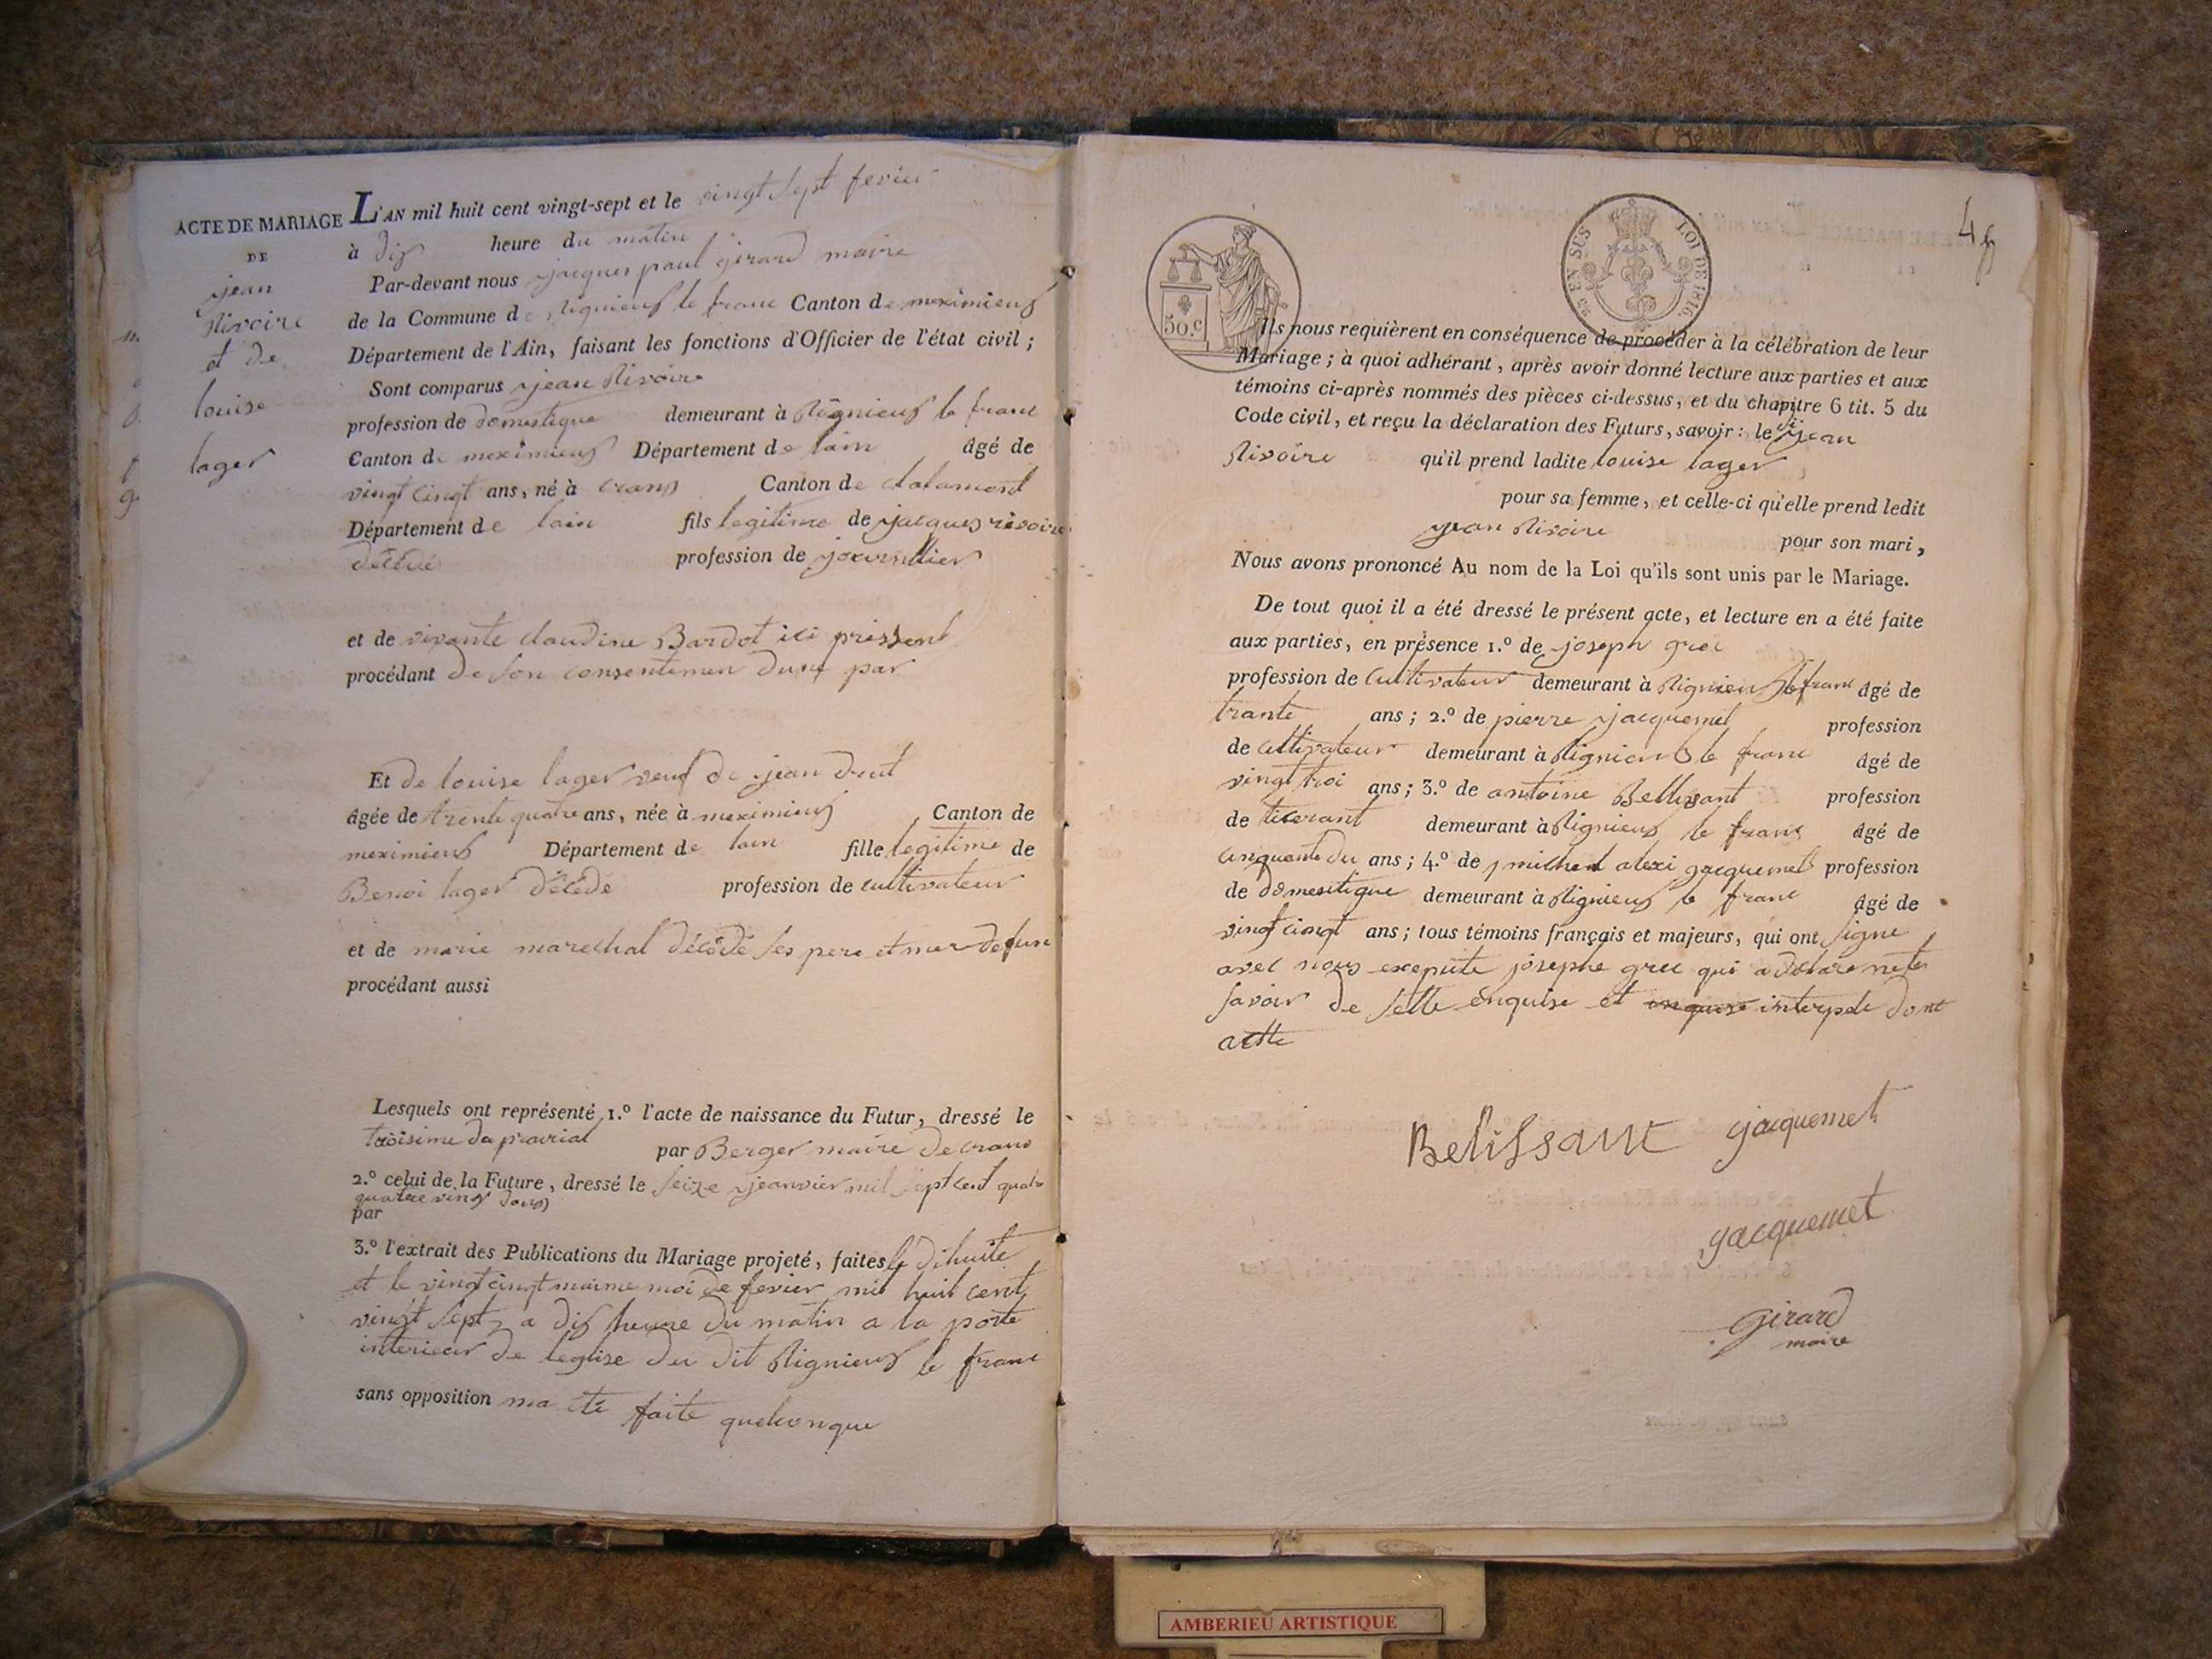 ACTE DE MARIAGE
DE
jean
Rivoire
et de
louise
lager
L'AN mil huit cent vingt-sept et le vingt sept fevier
à dix heure du matin
Par-devant nous jacques paul girard maire
de la Commune de Rignieux le franc Canton de meximieux
Département de l'Ain, faisant les fonctions d'Officier de l'état civil ;
Sont comparus jean Rivoire
profession de domestique demeurant à Rignieux le franc
Canton de meximieux Département de lain âgé de
vingt cinqt ans, né à crans Canton de chalamond
Département de lain fils legitime de jacques rivoire
décédé profession de journllier
et de vivante claudine Bardot ici present
procédant de son consentemen dune par
Et de louise lager veuf de jean
âgée de trente quatre ans, née à meximieux Canton de
meximieux Département de lain fille legitime de
Benoi lager décédé profession de cultivateur
et de marie marechal décédé ses pere et mer defun
procédant aussi
Lesquels ont représenté, 1.º l'acte de naissance du Futur, dressé le
troisime da prairial par Berger maire de crans
2.º celui de la Future, dressé le seize jeanvier mil sept cent quatr
quatre vingt
par
3.º l'extrait des Publications du Mariage projeté, faites le dihuite
et le vingt cinqt maime moi de fevier mil huit cent
vingt sept a dix heure du matin a la porte
interieur de leglise du dit Rignieux le franc
sans opposition na été faite quelconque
4
50.c
25 EN SUS
LOI DE 1816
Ils nous requièrent en conséquence de procéder à la célébration de leur
Mariage ; à quoi adhérant, après avoir donné lecture aux parties et aux
témoins ci-après nommés des pièces ci-dessus, et du chapitre 6 tit. 5 du
Code civil, et reçu la déclaration des Futurs, savoir : le jean
Rivoire qu'il prend ladite louise lager
pour sa femme, et celle-ci qu'elle prend ledit
jean Rivoire pour son mari,
Nous avons prononcé Au nom de la Loi qu'ils sont unis par le Mariage.
De tout quoi il a été dressé le présent acte, et lecture en a été faite
aux parties, en présence 1.º de joseph grec
profession de cultivateur demeurant à Rignieux le franc âgé de
trante ans ; 2.º de pierre jacquemet profession
de cultivateur demeurant à Rignieux le franc âgé de
vingt troi ans ; 3.º de antoine Bellissant profession
de ticerant demeurant à Rignieux le franc âgé de
cinquante du ans ; 4.º de michel alexi gacquemet profession
de domesitique demeurant à Rignieux le franc âgé de
vingt cinqt ans ; tous témoins français et majeurs, qui ont signe
avec nous exepute josephe grec qui a
savoir de enquise et enquise interpele dont
actte
Belissant jacquemet
gacquemet
girard
maire
AMBERIEU ARTISTIQUE